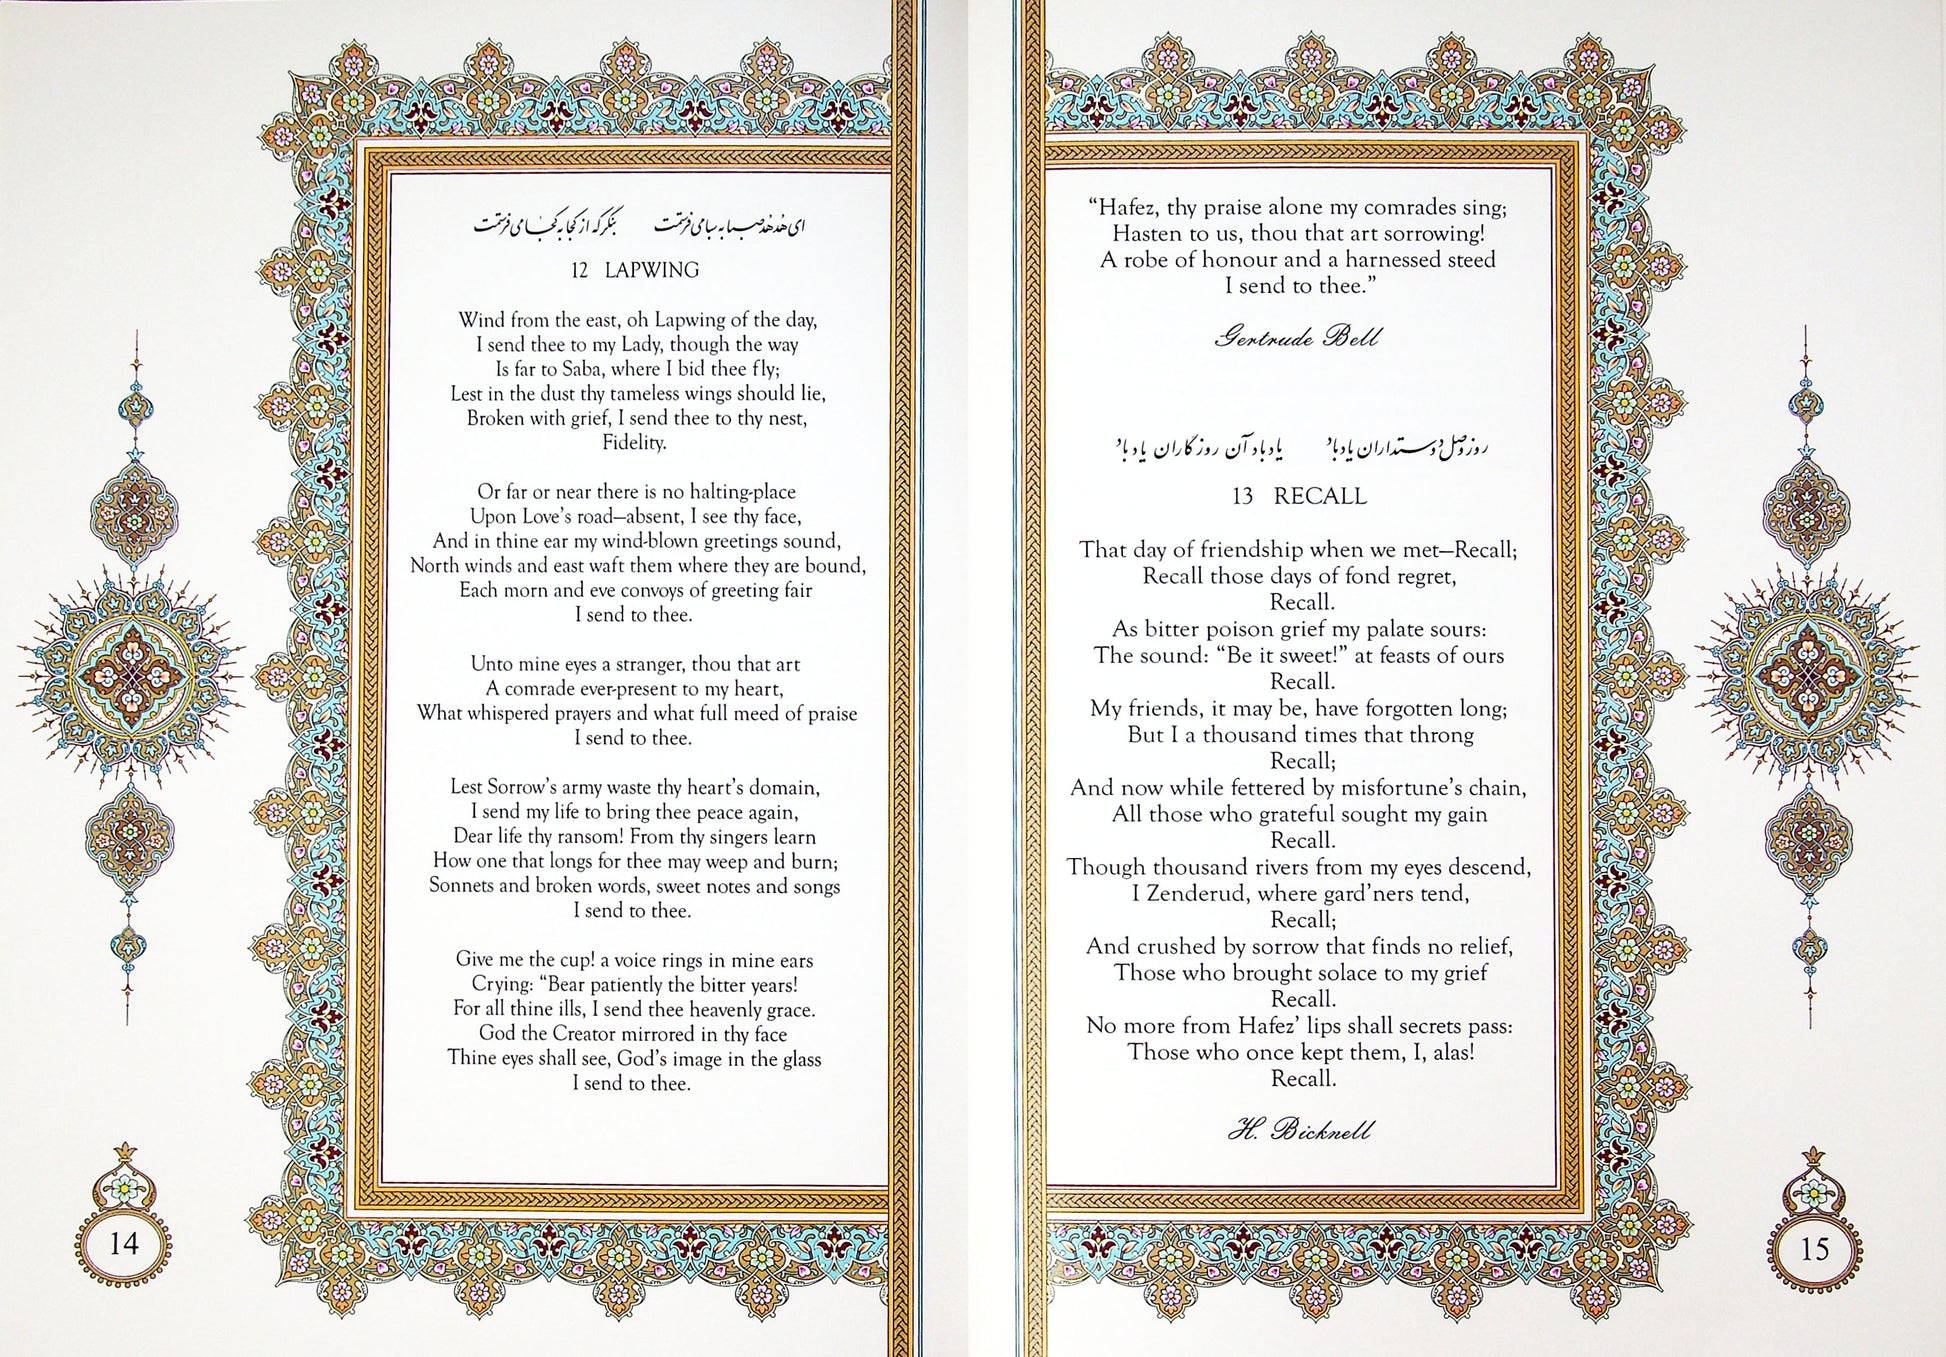 ای هدهد صبا به سبا می فرستمت بنگر که از کجا به کجا می فرستمت
12 LAPWING
Wind from the east, oh Lapwing of the day,
I send thee to my Lady, though the way
Is far to Saba, where I bid thee fly;
Lest in the dust thy tameless wings should lie,
Broken with grief, I send thee to thy nest,
Fidelity.
Or far or near there is no halting-place
Upon Love's road—absent, I see thy face,
And in thine ear my wind-blown greetings sound,
North winds and east waft them where they are bound,
Each morn and eve convoys of greeting fair
I send to thee.
Unto mine eyes a stranger, thou that art
A comrade ever-present to my heart,
What whispered prayers and what full meed of praise
I send to thee.
Lest Sorrow's army waste thy heart's domain,
I send my life to bring thee peace again,
Dear life thy ransom! From thy singers learn
How one that longs for thee may weep and burn;
Sonnets and broken words, sweet notes and songs
I send to thee.
Give me the cup! a voice rings in mine ears
Crying: “Bear patiently the bitter years!
For all thine ills, I send thee heavenly grace.
God the Creator mirrored in thy face
Thine eyes shall see, God's image in the glass
I send to thee.
14
“Hafez, thy praise alone my comrades sing;
Hasten to us, thou that art sorrowing!
A robe of honour and a harnessed steed
I send to thee.”
Gertrude Bell
روز وصل دوستداران یاد باد یاد باد آن روزگاران یاد باد
13 RECALL
That day of friendship when we met—Recall;
Recall those days of fond regret,
Recall.
As bitter poison grief my palate sours:
The sound: “Be it sweet!” at feasts of ours
Recall.
My friends, it may be, have forgotten long;
But I a thousand times that throng
Recall;
And now while fettered by misfortune's chain,
All those who grateful sought my gain
Recall.
Though thousand rivers from my eyes descend,
I Zenderud, where gard'ners tend,
Recall;
And crushed by sorrow that finds no relief,
Those who brought solace to my grief
Recall.
No more from Hafez' lips shall secrets pass:
Those who once kept them, I, alas!
Recall.
H. Bicknell
15